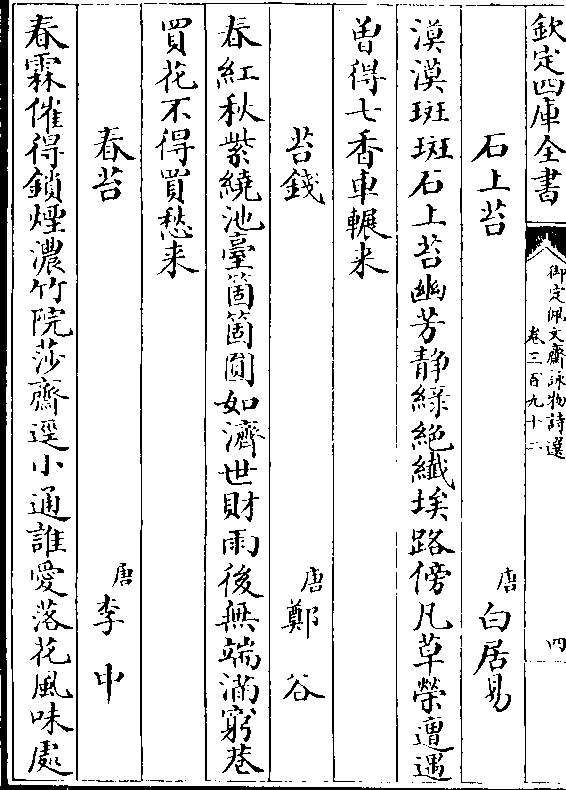 欽定四庫全書
御定佩文齋詠物詩選
卷三百九十二
四
石上苔
唐
白居易
漠漠斑斑石上苔幽芳静緑絶纎埃路傍凡草榮遭遇
曽得七香車輾来
苔錢
唐
鄭谷
春紅秋紫繞池臺箇箇圓如濟世財雨後無端滿窮巷
買花不得買愁来
春苔
唐
李中
春霖催得鎖煙濃竹院莎齋逕小通誰愛落花風味處